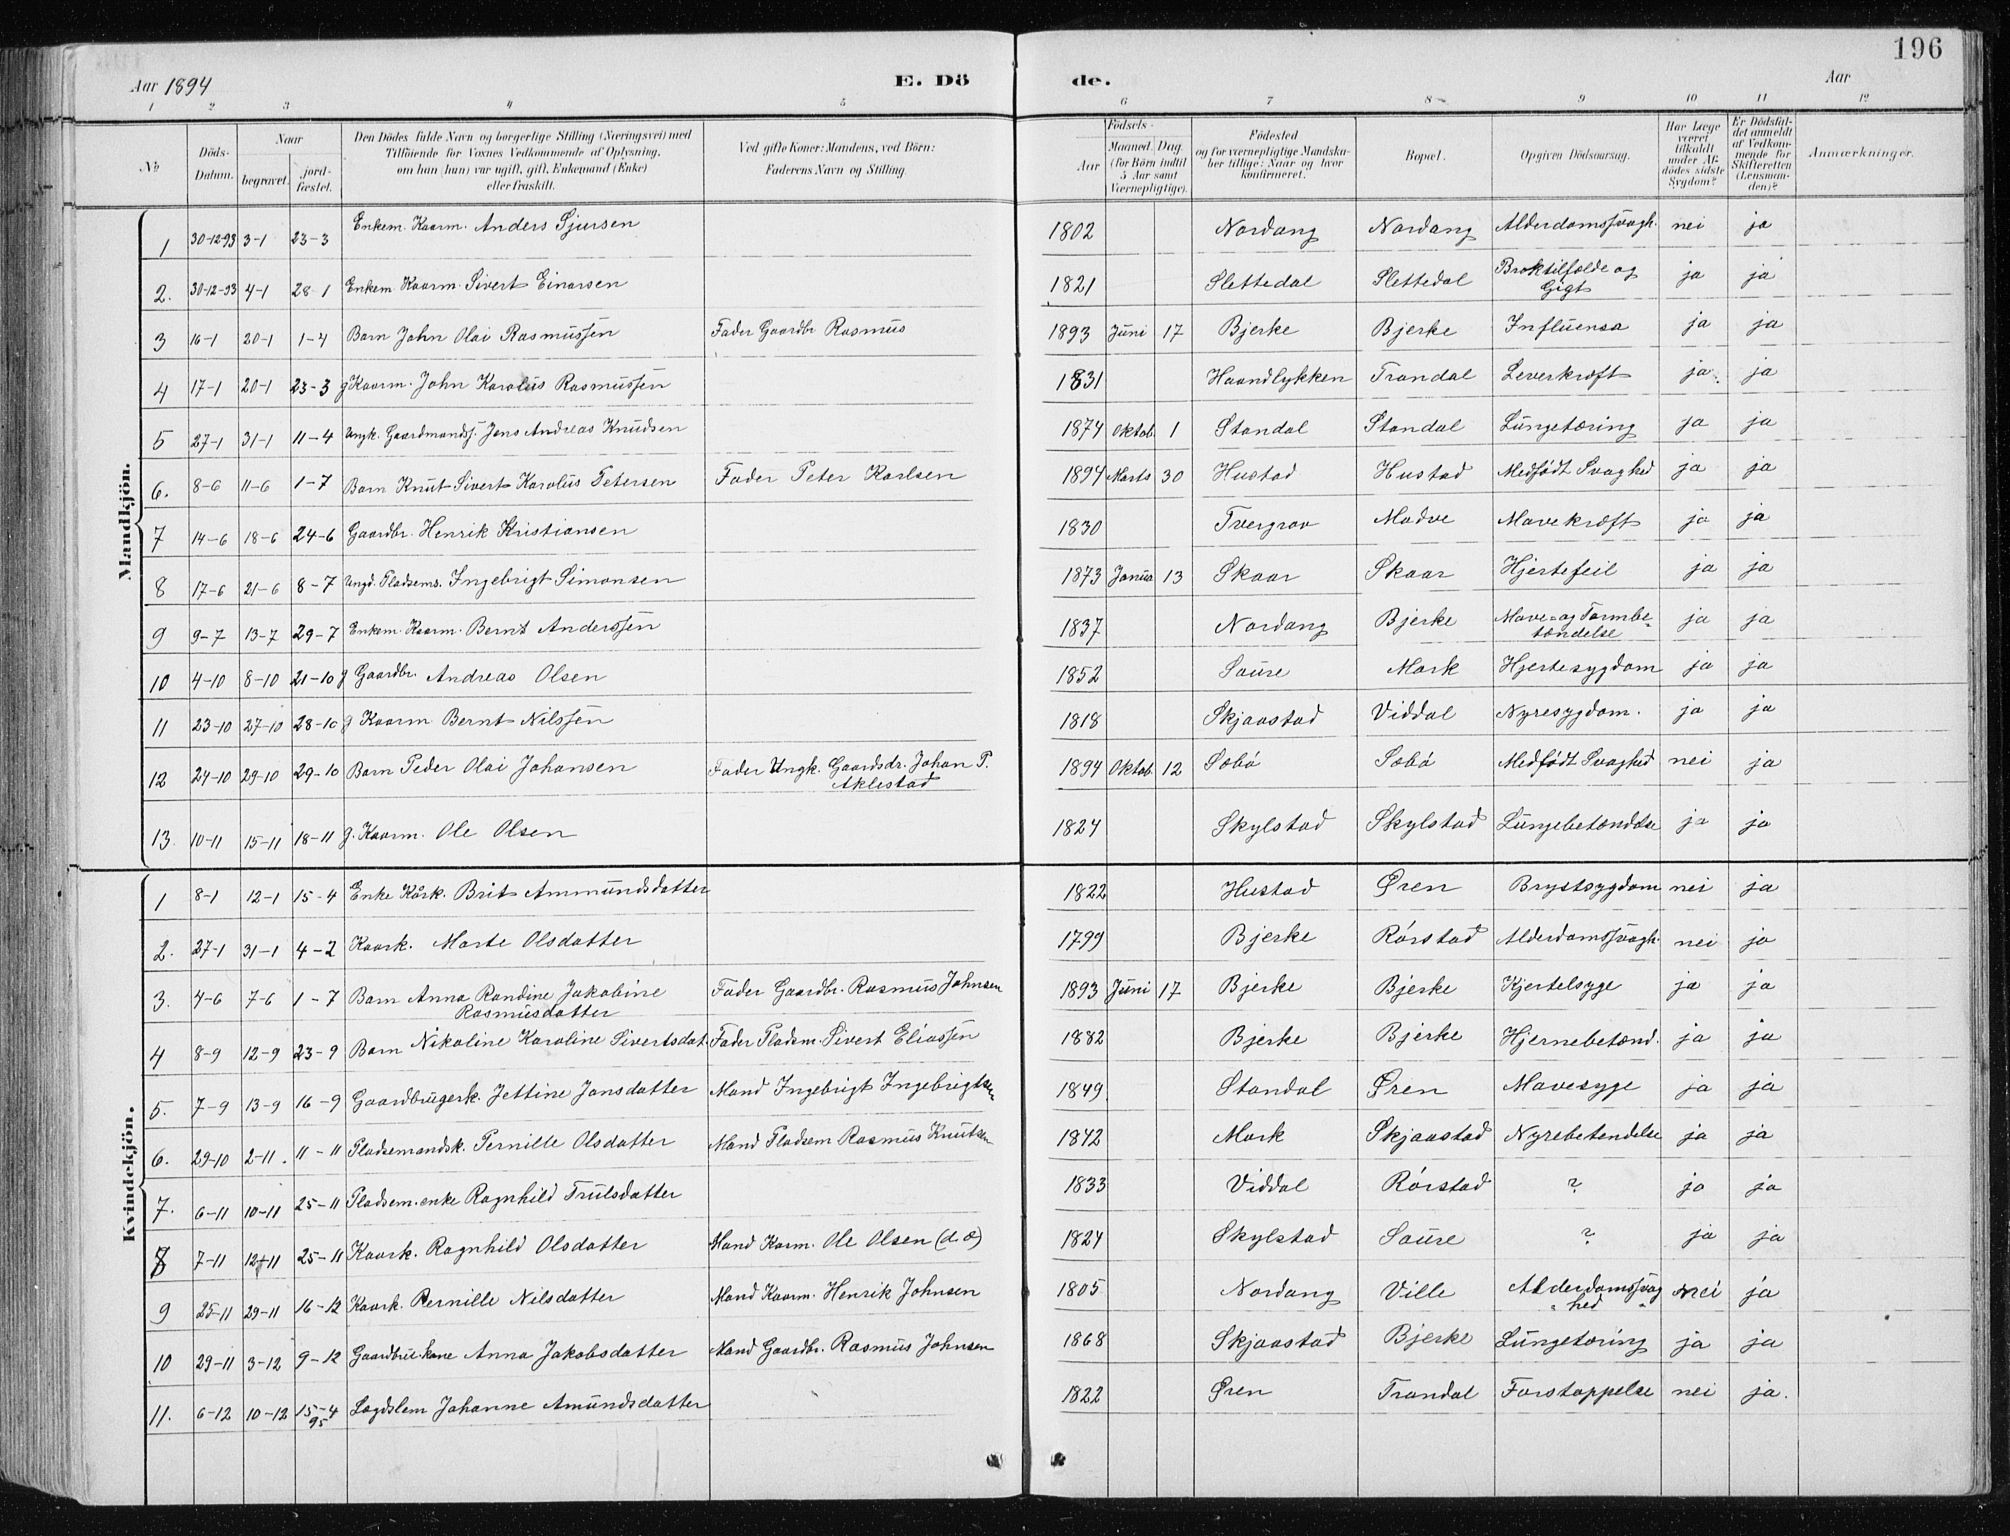 196
Aar 1894 E. Dö de. Aar
1 2 3 4 5 6 7 8 9 10 11 12
No Döds-Datum. Naar begravet. jordfæstet. Den Dödes fulde Navn og borgerlige Stilling (Næringsvei) med Tilföiende for Voxnes Vedkommende af Oplysning, om han (hun) var ugift, gift, Enkemand (Enke) eller fraskilt. Ved gifte Koner: Mandens, ved Börn: Faderens Navn og Stilling. Födsels- Aar Maaned. Dag. (for Börn indtil 5 Aar samt Værnepligtige). Födested og for værnepligtige Mandskaber tillige: Naar og hvor konfirmeret. Bopæl. Opgiven Dödsaarsag. Har Læge været tilkaldt under Afdödes sidste Sygdom? Er Dödsfaldet anmeldt af Vedkommende for Skifteretten (Lensmanden)? Anmærkninger.
Mandkjön.
1 30-12-93 3-1 23-3 Enkem. Kaarm. Anders Sjursen 1802 Nordang Nordang Alderdomssvagh. nei ja
2. 30-12-93 4-1 28-1 Enkem. Kaarm. Sivert Einarsen 1821 Slettedal Slettedal Broktilfælde og Gigt ja ja
3 16-1 20-1 1-4 Barn John Olai Rasmussen Fader Gaardbr Rasmus 1893 Juni 17 Bjerke Bjerke Influensa ja ja
4 17-1 20-1 23-3 g Kaarm. John Karolus Rasmussen 1831 Haandlykken Trandal Leverkræft ja ja
5 27-1 31-1 11-4 Ungk. Gaardmands. Jens Andreas Knudsen 1874 Oktob. 1 Standal Standal Lungetæring ja ja
6. 8-6 11-6 1-7 Barn Knut Sivert Karolus Petersen Fader Peter Karlsen 1894 Marts 30 Hustad Hustad Medfödt Svaghed ja ja
7 14-6 18-6 24-6 Gaardbr. Henrik Kristiansen 1830 Tvergrov Madve Mavekræft ja ja
8 17-6 21-6 8-7 Ungd. Pladsems. Ingebrigt Simonsen 1873 Janua 13 Skaar Skaar Hjertefeil ja ja
9 9-7 13-7 29-7 Enkem. Kaarm. Bernt Anderssen 1837 Nordang Bjerke Mave- og Tarmbetændelse ja ja
10 4-10 8-10 21-10 g Gaardbr. Andreas Olsen 1852 Saure Mork Hjertesygdom ja ja
11 23-10 27-10 28-10 g Kaarm Bernt Nilssen 1818 Skjaastad Viddal Nyresygdom. ja ja
12 24-10 29-10 29-10 Barn Peder Olai Johansen Fader Ungk. Gaardsdr. Johan P. Aklestad 1894 Oktob. 12 Sæbö Sæbö Medfödt Svaghed nei ja
13. 10-11 15-11 18-11 g. Kaarm. Ole Olsen 1824 Skylstad Skylstad Lungebetændelse ja ja
Kvindekjön.
1 8-1 12-1 15-4 Enke Kårk. Brit Ammundsdatter 1822 Hustad Øren Brystsygdom nei ja
2. 27-1 31-1 4-2 Kaark. Marte Olsdatter 1799 Bjerke Rörstad Alderdomssvagh. nei ja
3. 4-6 7-6 1-7 Barn Anna Randine Jakobine Rasmusdatter Fader Gaardbr. Rasmus Johnsen 1893 Juni 17 Bjerke Bjerke Kjertelsyge ja ja
4 8-9 12-9 23-9 Barn Nikoline Karoline Sivertsdat. Fader Pladsm. Sivert Eliassen 1882 Bjerke Bjerke Hjernebetænd. ja ja
5. 7-9 13-9 16-9 Gaardbrugerk. Jettine Jonsdatter Mand Ingebrigt Ingebrigtsen 1849 Standal Øren Mavesyge ja ja
6. 29-10 2-11. 11-11 Pladsemandsk. Pernille Olsdatter Mand Pladsem Rasmus Knutsen 1842 Mork Skjaastad Nyrebetendelse ja ja
7. 6-11 10-11 25-11 Pladsem.enke Ragnhild Trulsdatter 1833 Viddal Rörstad ? ja ja
8 7-11 12-11 25-11 Kaark. Ragnhild Olsdatter Mand Karm. Ole Olsen (d. æ) 1824 Skylstad Saure ? ja ja
9 25-11 29-11 16-12 Kaark. Pernille Nilsdatter Mand Kaarm. Henrik Johnsen 1805 Nordang Ville Alderdomssvaghed nei ja
10 29-11 3-12 9-12 Gaardbru.kone Anna Jakobsdatter Mand Gaardbr. Rasmus Johnsen 1868 Skjaastad Bjerke Lungetæring ja ja
11. 6-12 10-12 15-4 95 Lægdslem Johanne Amundsdatter 1822 Øren Trandal Forstoppelse nei ja.